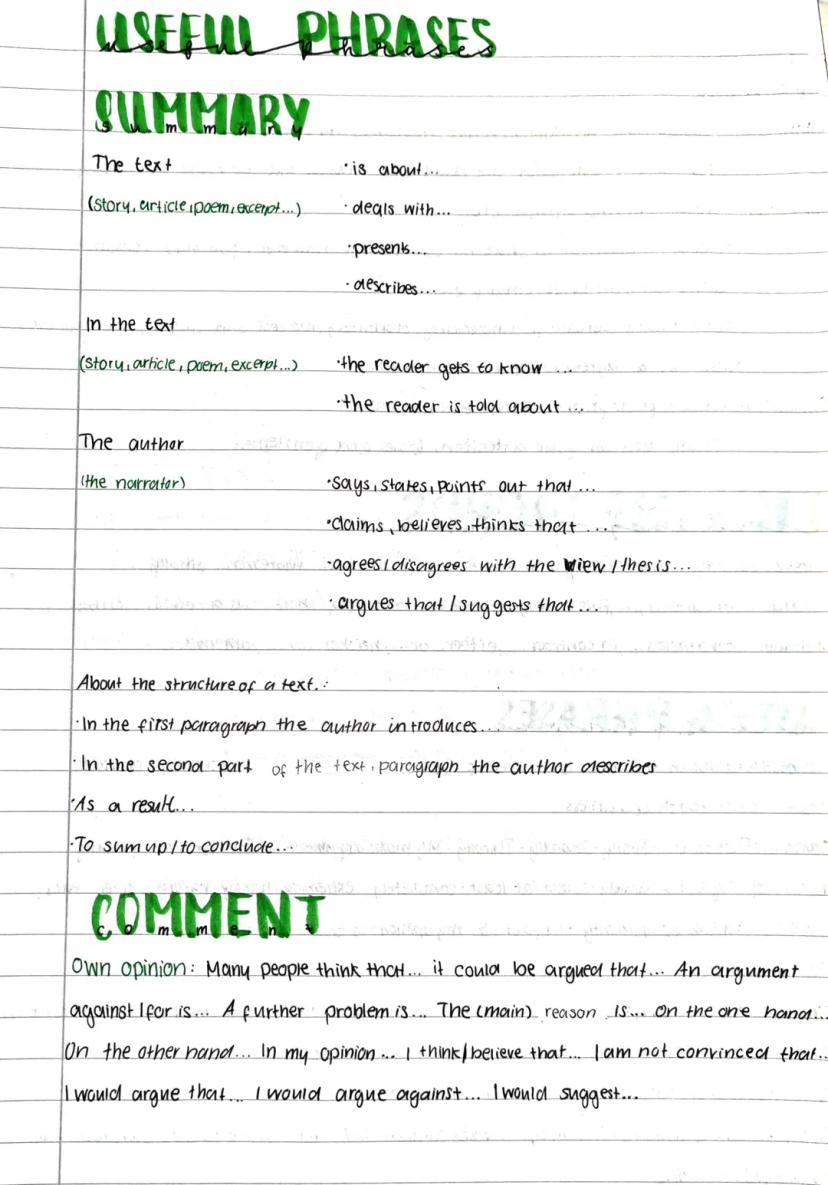 USEFUL PHRASES
useful phrases
SUMMARY
summary
The text · is about...
(story, article, poem, excerpt...) · deals with...
· presents...
· describes...
In the text
(story, article, poem, excerpt...) · the reader gets to know ...
· the reader is told about ...
The author
(the narrator) · says, states, points out that ...
· claims, believes, thinks that ...
· agrees / disagrees with the view / thesis...
· argues that / suggests that ...
About the structure of a text.:
· In the first paragraph the author introduces...
· In the second part of the text, paragraph the author describes
· As a result...
· To sum up / to conclude...
COMMENT
comment
Own opinion: Many people think that... it could be argued that... An argument
against / for is... A further problem is... The (main) reason is... On the one hand...
On the other hand... In my opinion... I think / believe that... I am not convinced that..
I would argue that... I would argue against... I would suggest...